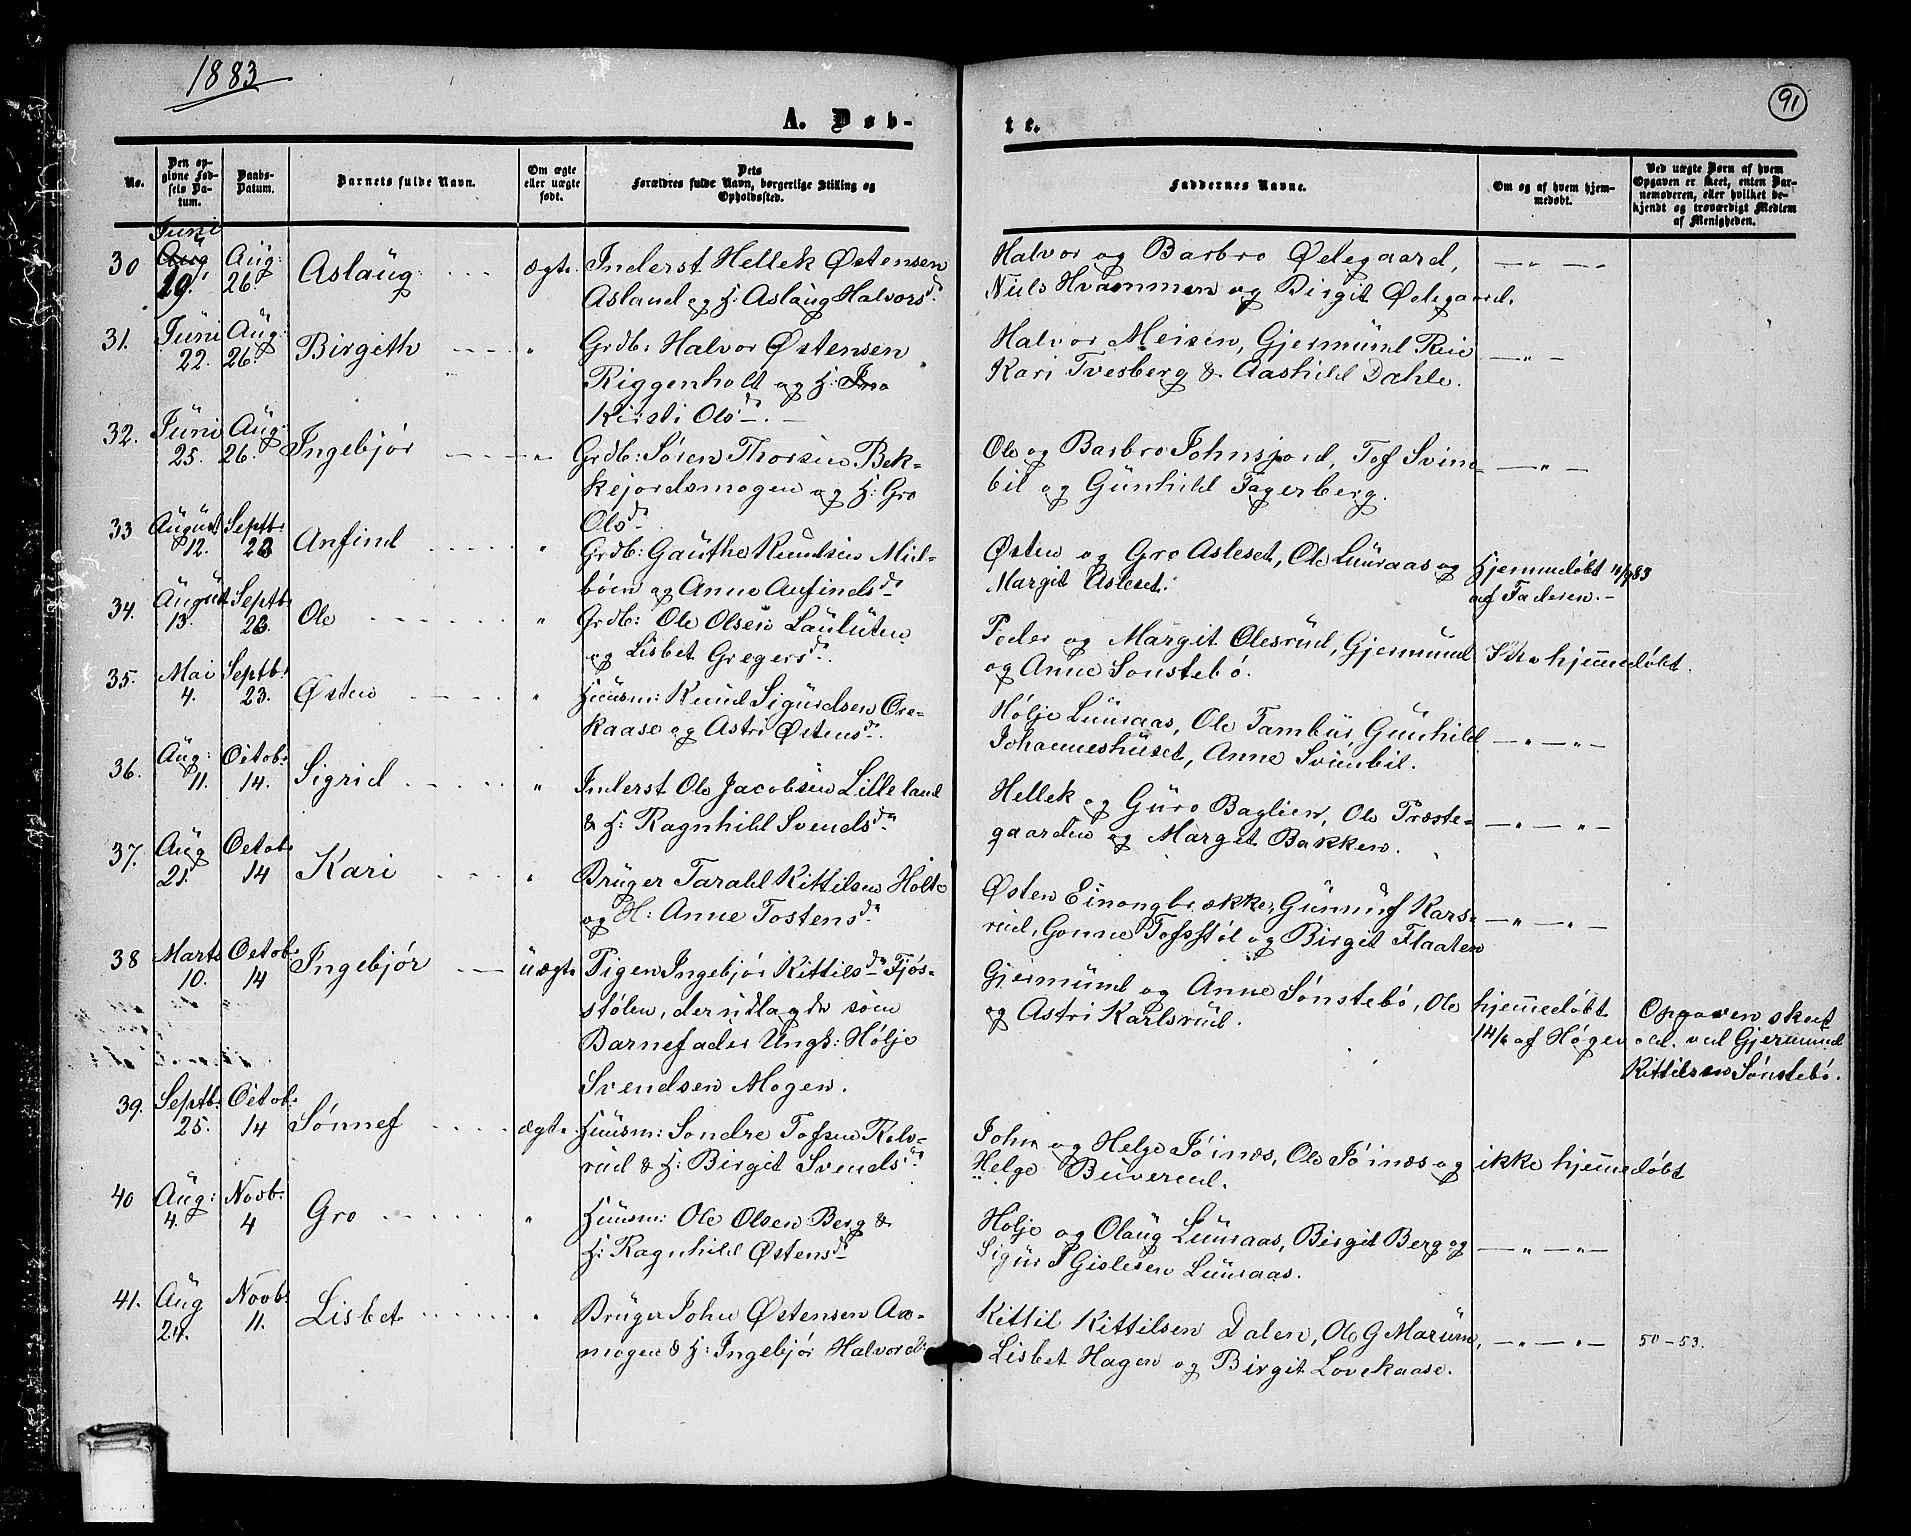 1883
91
A. Døb-
te.
No.
Den op-
givne Fød-
sels Da-
tum.
Daabs-
Datum.
Barnets fulde Navn.
Om ægte
eller uægte
født.
Dets
Forældres fulde Navn, borgerlige Stilling og
Opholdssted.
Faddernes Navne.
Om og af hvem hjem-
medøbt.
Ved uægte Børn af hvem
Opgaven er skeet, enten Bar-
nemoderen, eller hvilket be-
kjendt og troværdigt Medlem
af Menigheden.
30 Juni Aug 19. Aug: 26. Aslaug ægte Inderst Hellek Østensen
Asland og H: Aslaug Halvorsdr.
Halvor og Barbro Ødegaard,
Niels Hvammen og Birgit Ødegaard.
31. Juni 22. Aug: 26. Birgith " Grdb: Halvor Østensen
Riggenholt og H:
Kirsti Olsdr.
Halvor Meisen, Gjermund Reie
Kari Tvesberg & Aashild Dahle.
32. Juni 25. Aug: 26. Ingebjør " Grdb: Søren Thorsen Bek-
kejordsmogen og H: Gro
Olsdr
Ole og Barbro Johnsjord, Tof Svine-
bil og Gunhild Fagerberg.
33 August 12. Septb: 23 Anfind " Grdb: Gauthe Knudsen Mid-
bøen og Anne Anfindsdr
Østen og Gro Asleset, Ole Luuraas og
Margit Asleset.
Hjemmedøbt
af Faderen.
34. August 13. Septb: 23. Ole " Grdb: Ole Olsen Lauluten
og Lisbet Gregersdr.
Peder og Margit Olesrud, Gjermund
og Anne Sønstebø.
Ikke hjemmedøbt.
35. Mai 4. Septb: 23. Østen " Huusm: Knud Sigurdsen Ore-
kaase og Astri Østensdr.
Hølje Luuraas, Ole Tambur, Gunhild
Johanneshuset, Anne Svinebil.
36. Aug: 11. Octob: 14. Sigrid " Inderst Ole Jacobsen Lilleland
& H: Ragnhild Svendsdr
Hellek og Guro Baglien, Ole Præste-
gaarden og Marget Bakken.
37. Aug 21. Octob: 14 Kari " Bruger Tarald Kittilsen Holte
og H: Anne Tostensdr
Østen Einongbrække, Gunnuf Kars-
rud, Gonne Tofsstøl og Birgit Flaaten
38 Marts 10. Octob: 14 Ingebjør uægte Pigen Ingebjør Kittilsdr Fjøs-
stølen, der udlagde som
Barnefader Ungk: Hølje
Svendsen Mogen.
Gjermund og Anne Sønstebø, Ole
og Astri Karlsrud.
hjemmedøbt
14/6 af Høgen
Opgaven skeet
ved Gjermund
Kittilsen Sønstebø.
39. Septb: 25. Octob: 14 Sønnef ægte Huusm: Sondre Tofsen Rolv-
rud & H: Birgit Svendsdr
John og Helge Jøinæs, Ole Jøinæs og
Helge Buverud.
ikke hjemmedøbt
40 Aug: 4. Novb: 4 Gro " Huusm: Ole Olsen Berg &
H: Ragnhild Østensdr
Hølje og Olaug Luuraas, Birgit Berg og
Sigur Gislesen Luuraas.
41. Aug 24. Novb: 11. Lisbet " Bruger John Østensen Aa-
mogen & H: Ingebjør Halvord:
Kittil Kittilsen Dalen, Ole G Marum,
Lisbet Hagen og Birgit Lovekaase.
50-53.